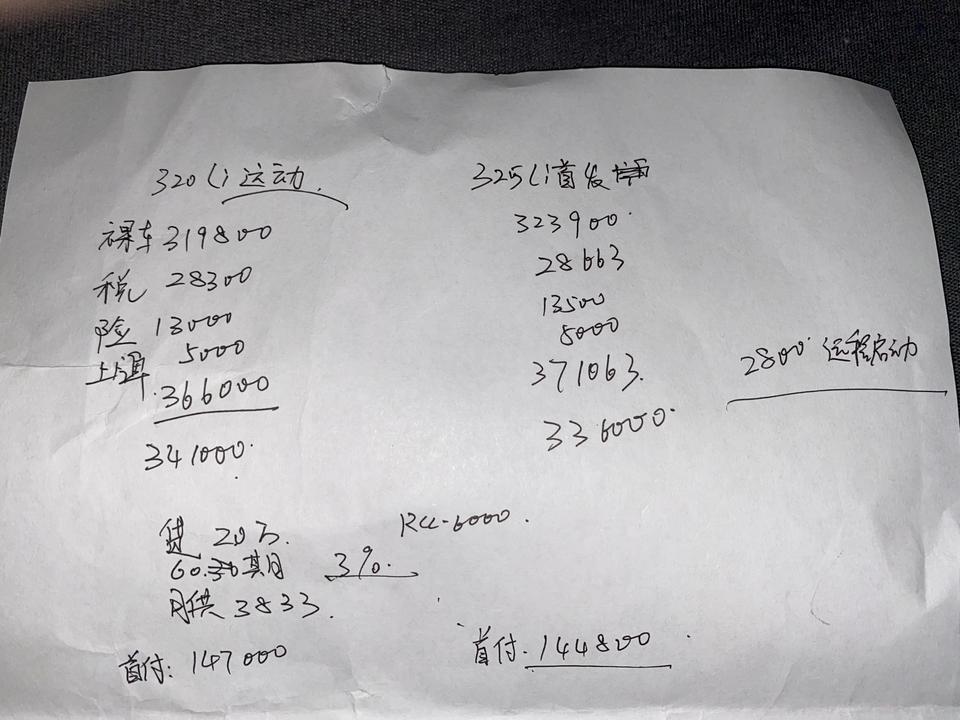 320Li 运动.
裸车 319800
税 28300
险 13000
上牌 5000
366000
341000.
325Li首发
323900.
28663
13500
8000
371063.
336000.
2800. 远程启动
贷 20万.
60. 期
3%.
月供 3833.
首付: 147000
6000.
首付. 144800.